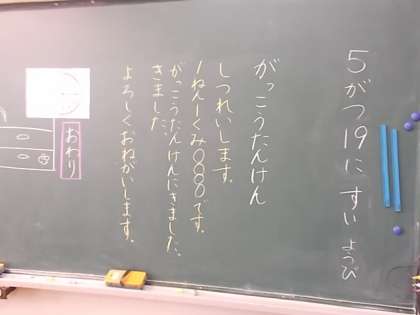 5がつ19に すいようび
がっこうたんけん
しつれいします。
1ねん1くみ〇〇〇です。
がっこうたんけんにきました。
きました。
よろしくおねがいします。
おわり